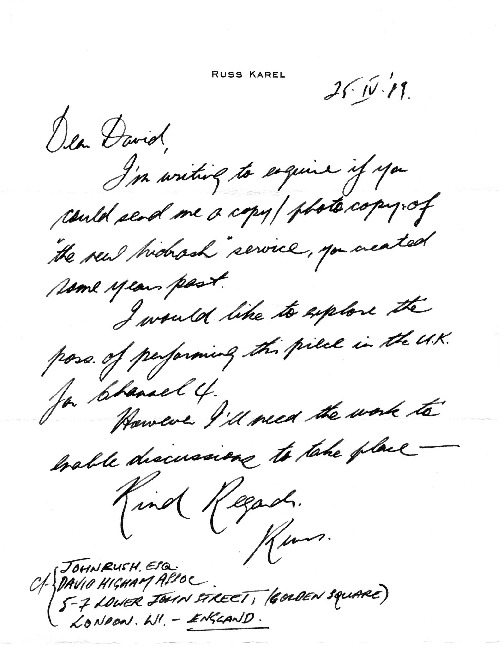 RUSS KAREL
25·IV·'89.
Dear David,
I'm writing to enquire if you
could send me a copy/photocopy of
"the new Midrash" service, you created
some years past.
I would like to explore the
poss. of performing this piece in the U.K.
for Channel 4.
However I'll need the work to
enable discussions to take place —
Kind Regards.
Russ.
c/o JOHN RUSH. ESQ.
DAVID HIGHAM ASSOC.
5-7 LOWER JOHN STREET, (GOLDEN SQUARE)
LONDON. W1. - ENGLAND.